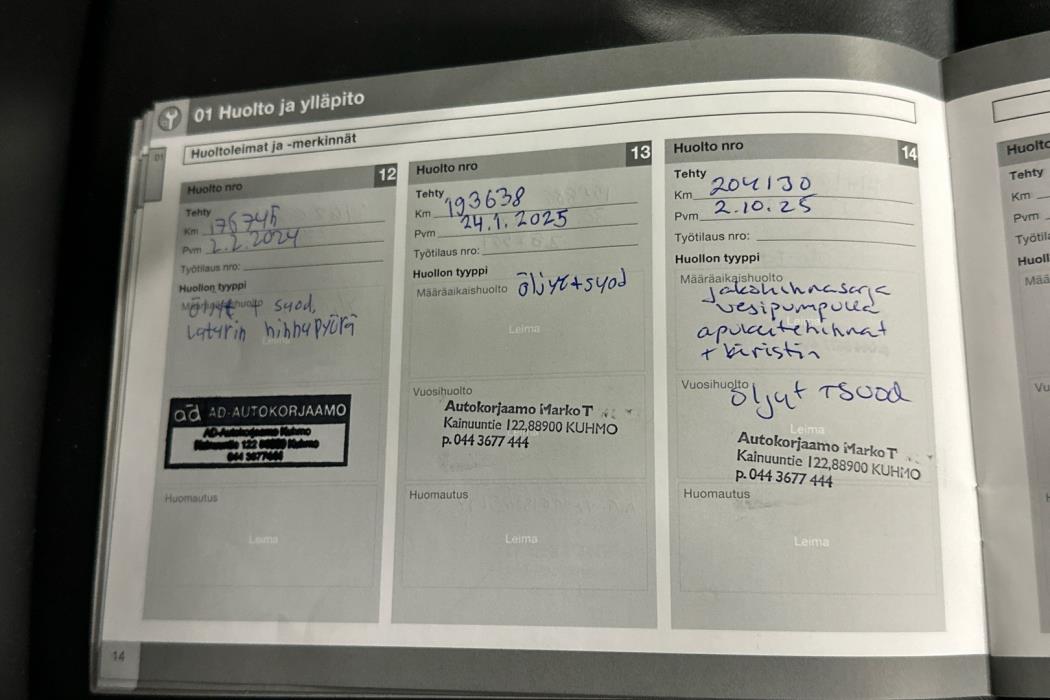 01 Huolto ja ylläpito
01
Huoltoleimat ja -merkinnät
Huolto nro 12
Tehty
Km 176745
Pvm 2.2.2024
Työtilaus nro:
Huollon tyyppi
Määräaikaishuolto
Öljyt + suod,
Laturin hihnapyörä
Leima
ad AD-AUTOKORJAAMO
AD-Autokorjaamo Kuhmo
Kainuuntie 122 88900 Kuhmo
044 3677444
Huomautus
Leima
Huolto nro 13
Tehty
Km 193638
Pvm 24.1.2025
Työtilaus nro:
Huollon tyyppi
Määräaikaishuolto öljyt+suod
Leima
Vuosihuolto
Autokorjaamo Marko T
Kainuuntie 122,88900 KUHMO
p. 044 3677 444
Huomautus
Leima
Huolto nro 14
Tehty
Km 204130
Pvm 2.10.25
Työtilaus nro:
Huollon tyyppi
Määräaikaishuolto
jakohihnasarja
vesipumpulla
apulaitehihnat
+ kiristin
Vuosihuolto öljyt + suod
Leima
Autokorjaamo Marko T
Kainuuntie 122,88900 KUHMO
p. 044 3677 444
Huomautus
Leima
Huolto
Tehty
Km
Pvm
14